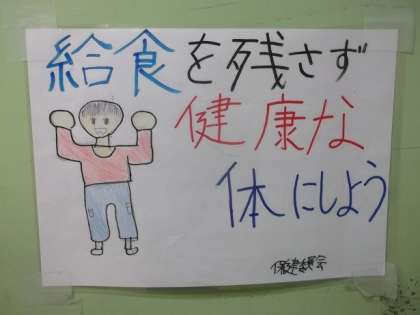 給食を残さず
健康な
体にしよう
保健委員会